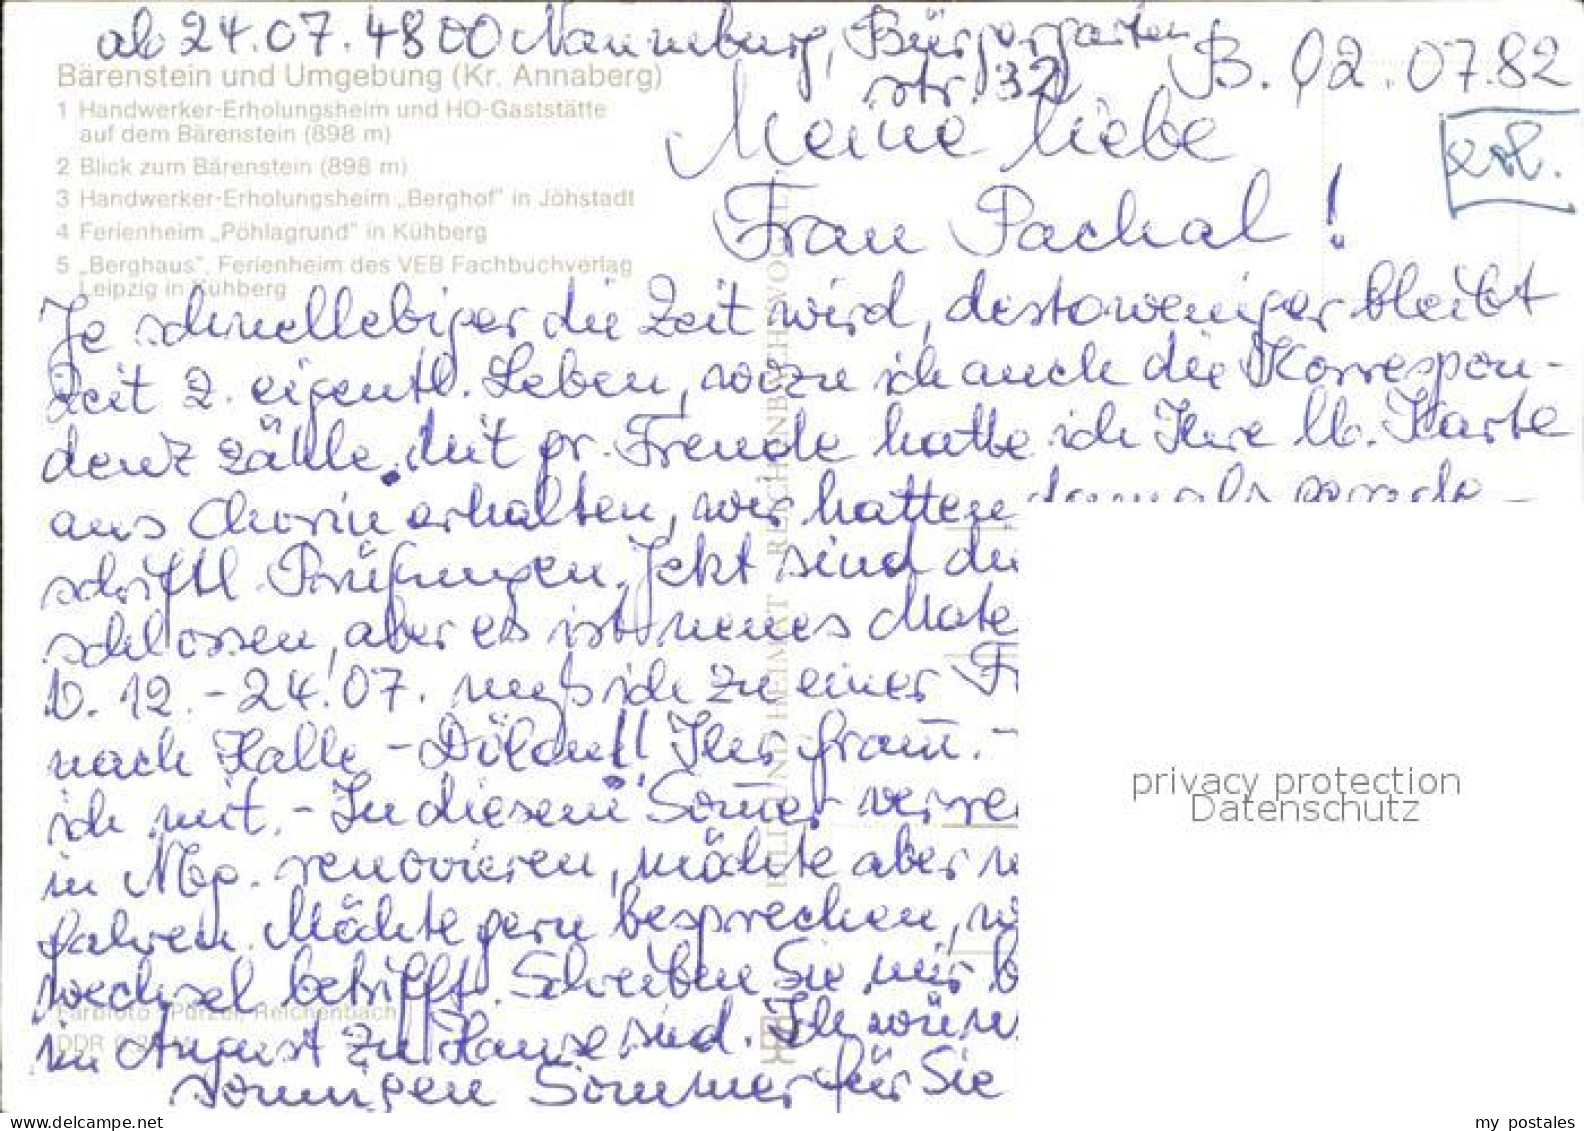 ab 24.07. 4800 Naumburg, Bürgergarten
str. 32
B. 02.07.82
erl.
Bärenstein und Umgebung (Kr. Annaberg)
1 Handwerker-Erholungsheim und HO-Gaststätte
auf dem Bärenstein (898 m)
2 Blick zum Bärenstein (898 m)
3 Handwerker-Erholungsheim „Berghof" in Jöhstadt
4 Ferienheim „Pöhlagrund" in Kühberg
5 „Berghaus", Ferienheim des VEB Fachbuchverlag
Leipzig in Kühberg
Meine liebe
Frau Pachal!
Je schnellebiger die Zeit wird, destoweniger bleibt
Zeit z. eigentl. Leben, wozu ich auch die Korrespon-
denz zähle. Mit gr. Freude hatte ich Ihre lb. Karte
aus Chorin erhalten, wir hatten damals gerade
schriftl. Prüfungen. Jetzt sind die
schlossen, aber es ist neues Mate
V. 12.-24.07. muß ich zu einer F
nach Halle-Dölau!! Ihr
ich mit.- In diesem Som̅er verre
in Nbg. renovieren, möchte aber n
fahren. Möchte gern besprechen, w
wechsel betrifft. Schreiben Sie mir b
im August zu Hause sind. Ich wün
sonnigen Sommer für Sie
BILD UND HEIMAT REICHENBACH VOGTL
Farbfoto: Pürzel, Reichenbach
DDR
privacy protection
Datenschutz
www.delcampe.net
my_postales